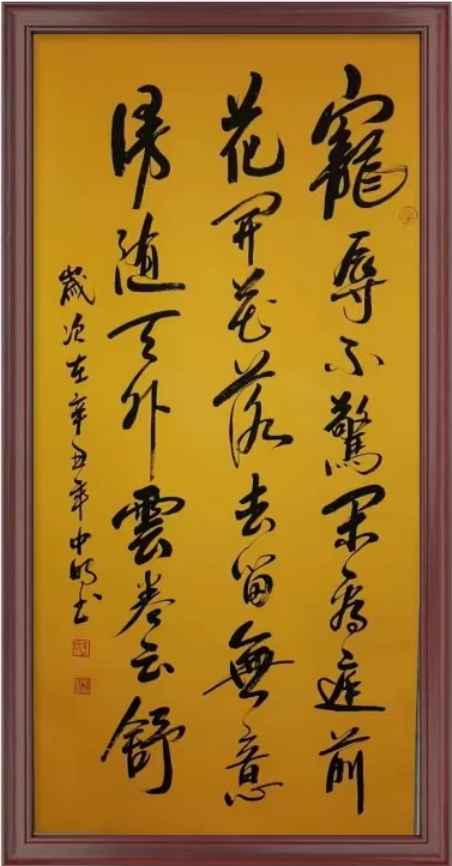 寵辱不驚閑看庭前
花開花落去留無意
漫隨天外雲卷云舒
歲次在辛丑年中书